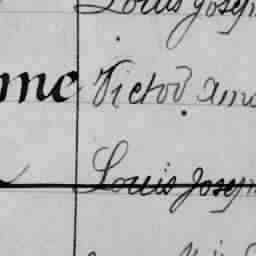 Louis Joseph
me Victor Am
Louis Joseph